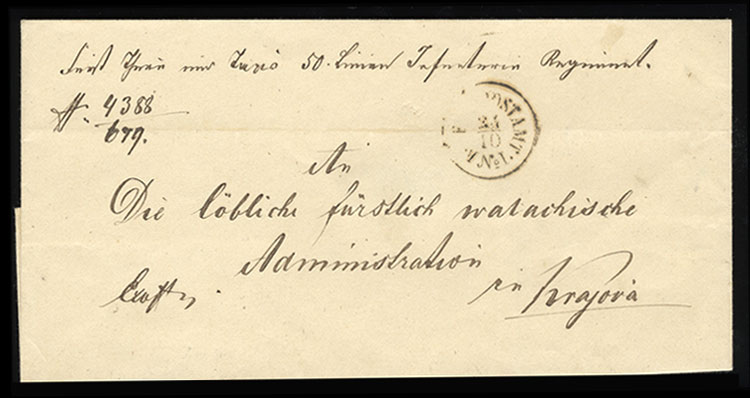 Fürst Thurn und Taxis 50. Linien Infanterie Regiment.
N. 4388
679.
POSTAMT N: I.
24
10
An
Die löbliche fürstlich walachische
Administration
in Krajova